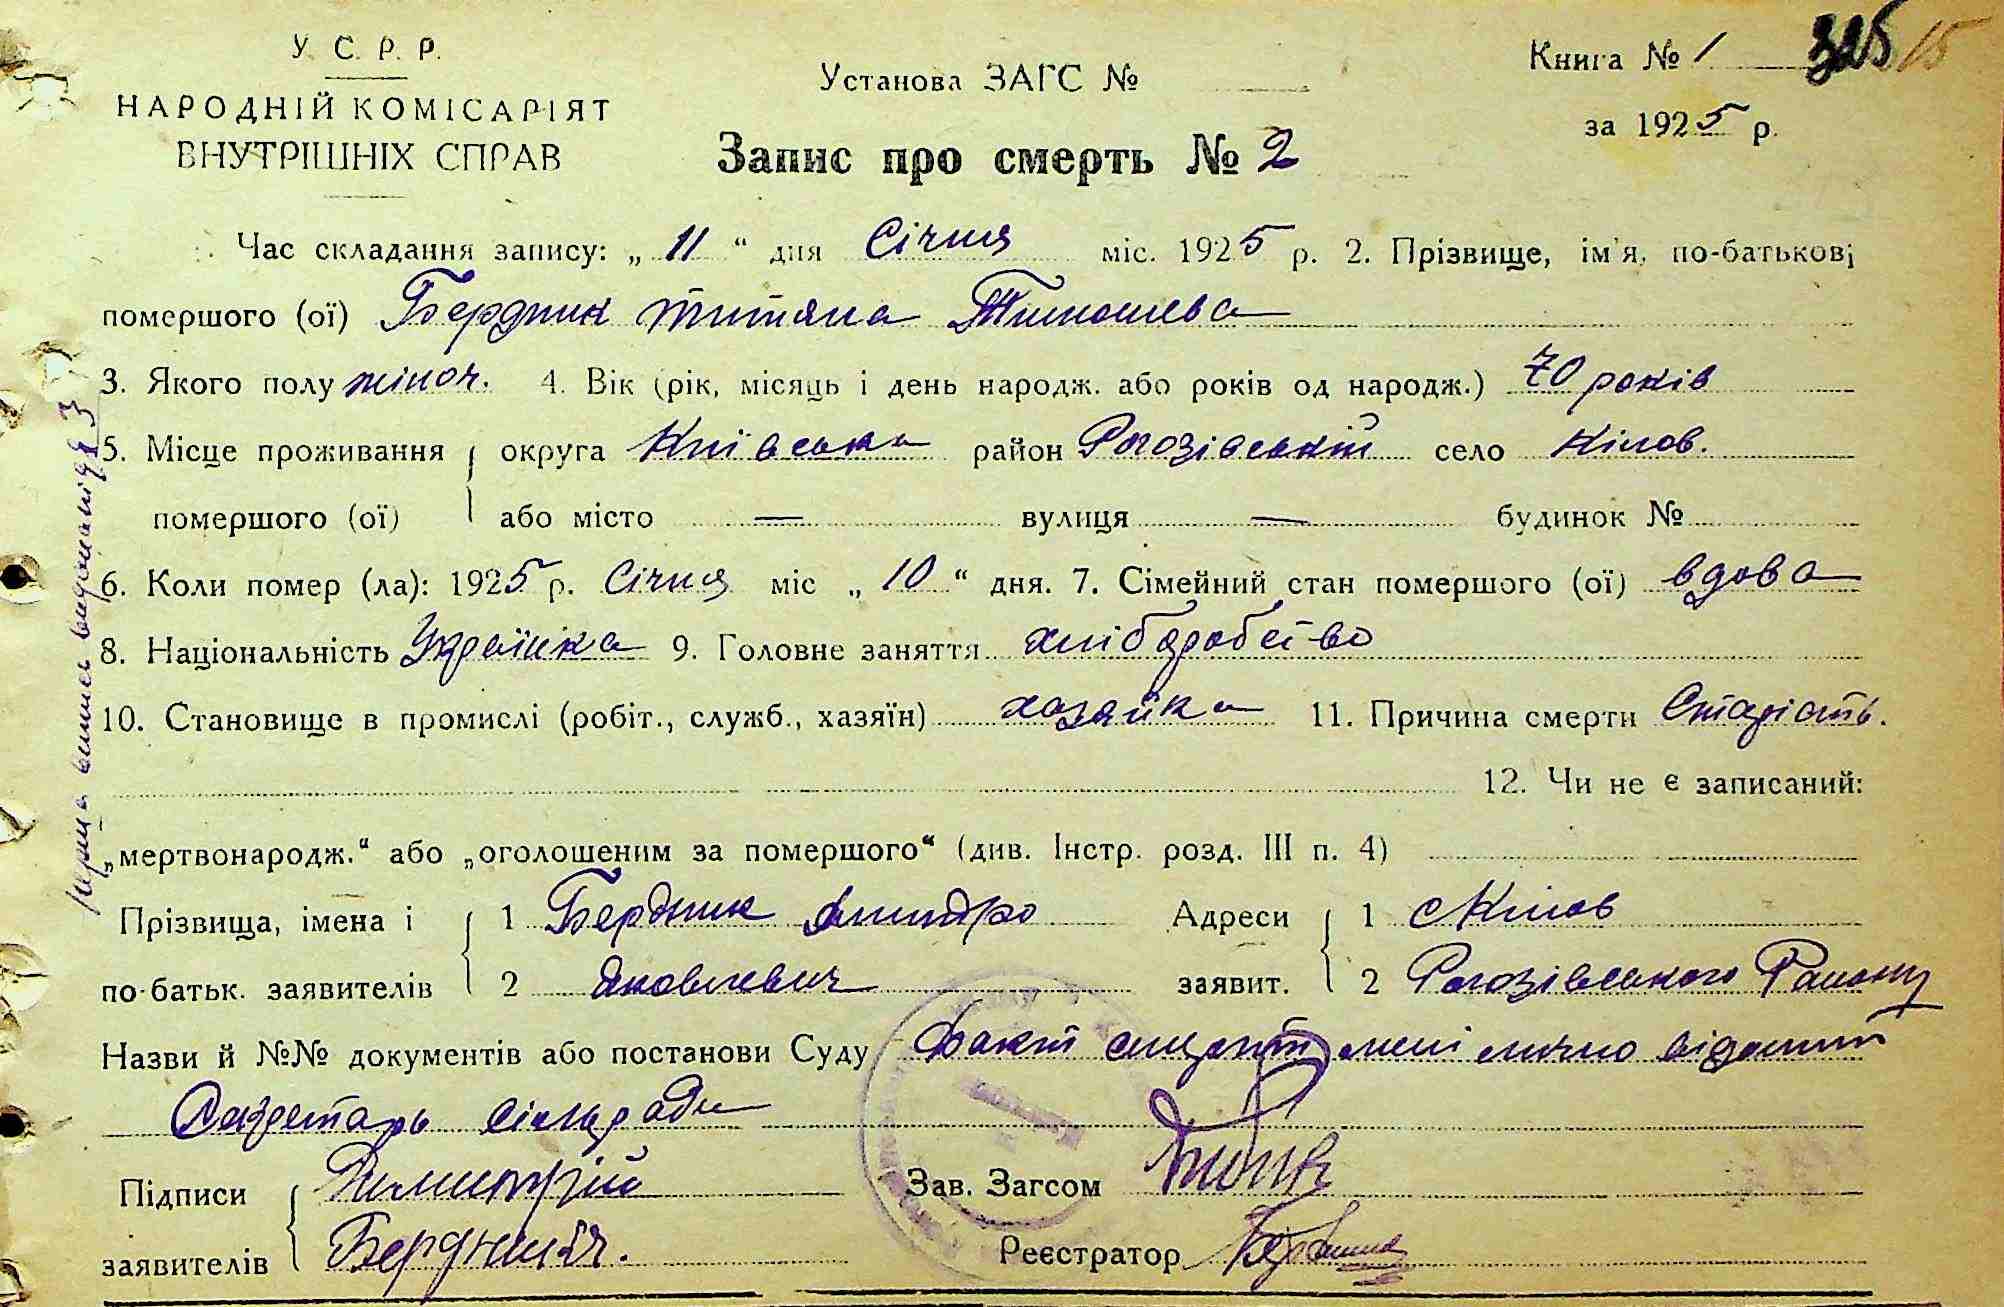 У. С. Р. Р.
НАРОДНІЙ КОМІСАРІЯТ
ВНУТРІШНІХ СПРАВ
Установа ЗАГС №
Книга № 1 325 15
за 1925 р.
Запис про смерть № 2
Час складання запису: „ 11 “ дня Січня міс. 1925 р. 2. Прізвище, ім'я, по-батькові
помершого (ої) Бердник Титяна Тимошева
3. Якого полу жіноч. 4. Вік (рік, місяць і день народж. або років од народж.) 70 років
5. Місце проживання округа Київська район Рогозівський село Кілов.
помершого (ої) або місто — вулиця — будинок №
6. Коли помер (ла): 1925 р. Січня міс „ 10 “ дня. 7. Сімейний стан помершого (ої) вдова
8. Національність Українка 9. Головне заняття хліборобство
10. Становище в промислі (робіт., служб., хазяїн) хазяйка 11. Причина смерти Старість.
12. Чи не є записаний:
„мертвонародж.“ або „оголошеним за помершого“ (див. Інстр. розд. III п. 4)
Прізвища, імена і 1 Бердник Дмитро Адреси 1 с Кілов
по-батьк. заявителів 2 Яковлевич заявит. 2 Рогозівського Району
Назви й №№ документів або постанови Суду Факт смерті мені лично відомий
Секретарь сільради
Підписи Димитрій Зав. Загсом
заявителів Бердник. Реєстратор